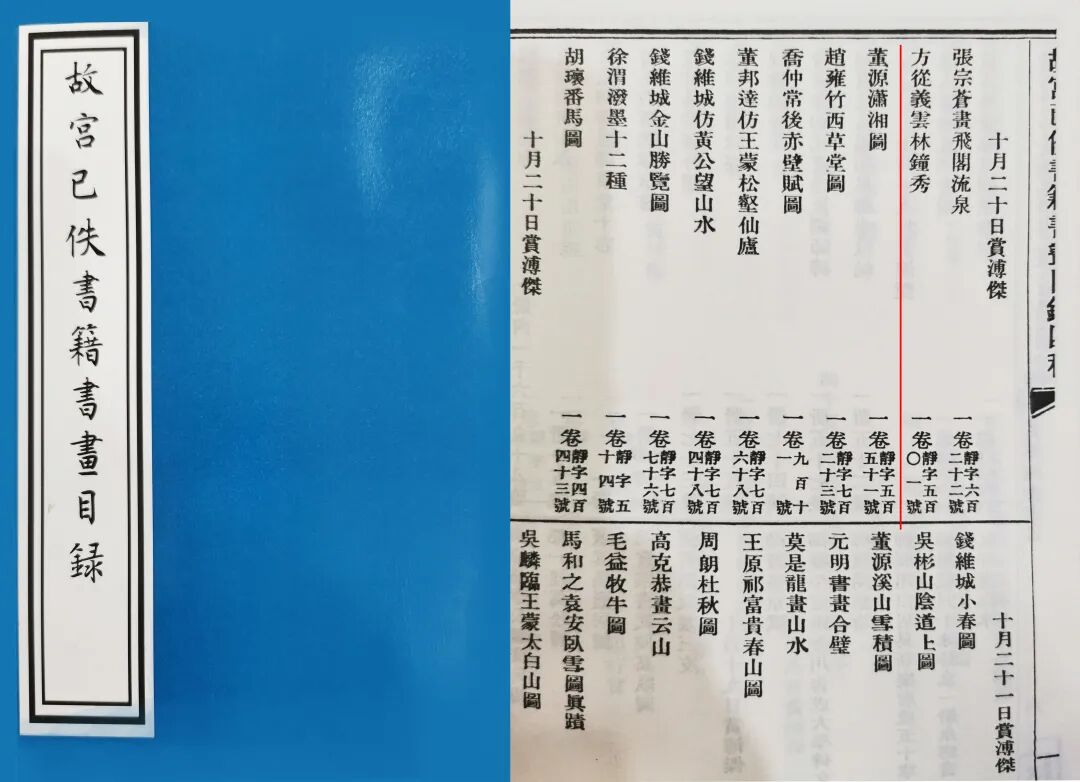 故宮已佚書籍書畫目録
故宮已佚書籍書畫目錄四種
十月二十日賞溥傑
張宗蒼畫飛閣流泉 一卷 靜字六百二十二號
方從義雲林鐘秀 一卷 靜字五百〇一號
董源瀟湘圖 一卷 靜字五百五十一號
趙雍竹西草堂圖 一卷 靜字七百二十三號
喬仲常後赤壁賦圖 一卷 九百十一號
董邦達仿王蒙松壑仙廬 一卷 靜字七百六十八號
錢維城仿黃公望山水 一卷 靜字七百四十八號
錢維城金山勝覽圖 一卷 靜字七百七十六號
徐渭潑墨十二種 一卷 靜字五十四號
胡瓌番馬圖 一卷 靜字四百四十三號
十月二十日賞溥傑
十月二十一日賞溥傑
錢維城小春圖
吳彬山陰道上圖
董源溪山雪積圖
元明書畫合璧
莫是龍畫山水
王原祁富貴春山圖
周朗杜秋圖
高克恭畫云山
毛益牧牛圖
馬和之袁安臥雪圖眞蹟
吳麟臨王蒙太白山圖